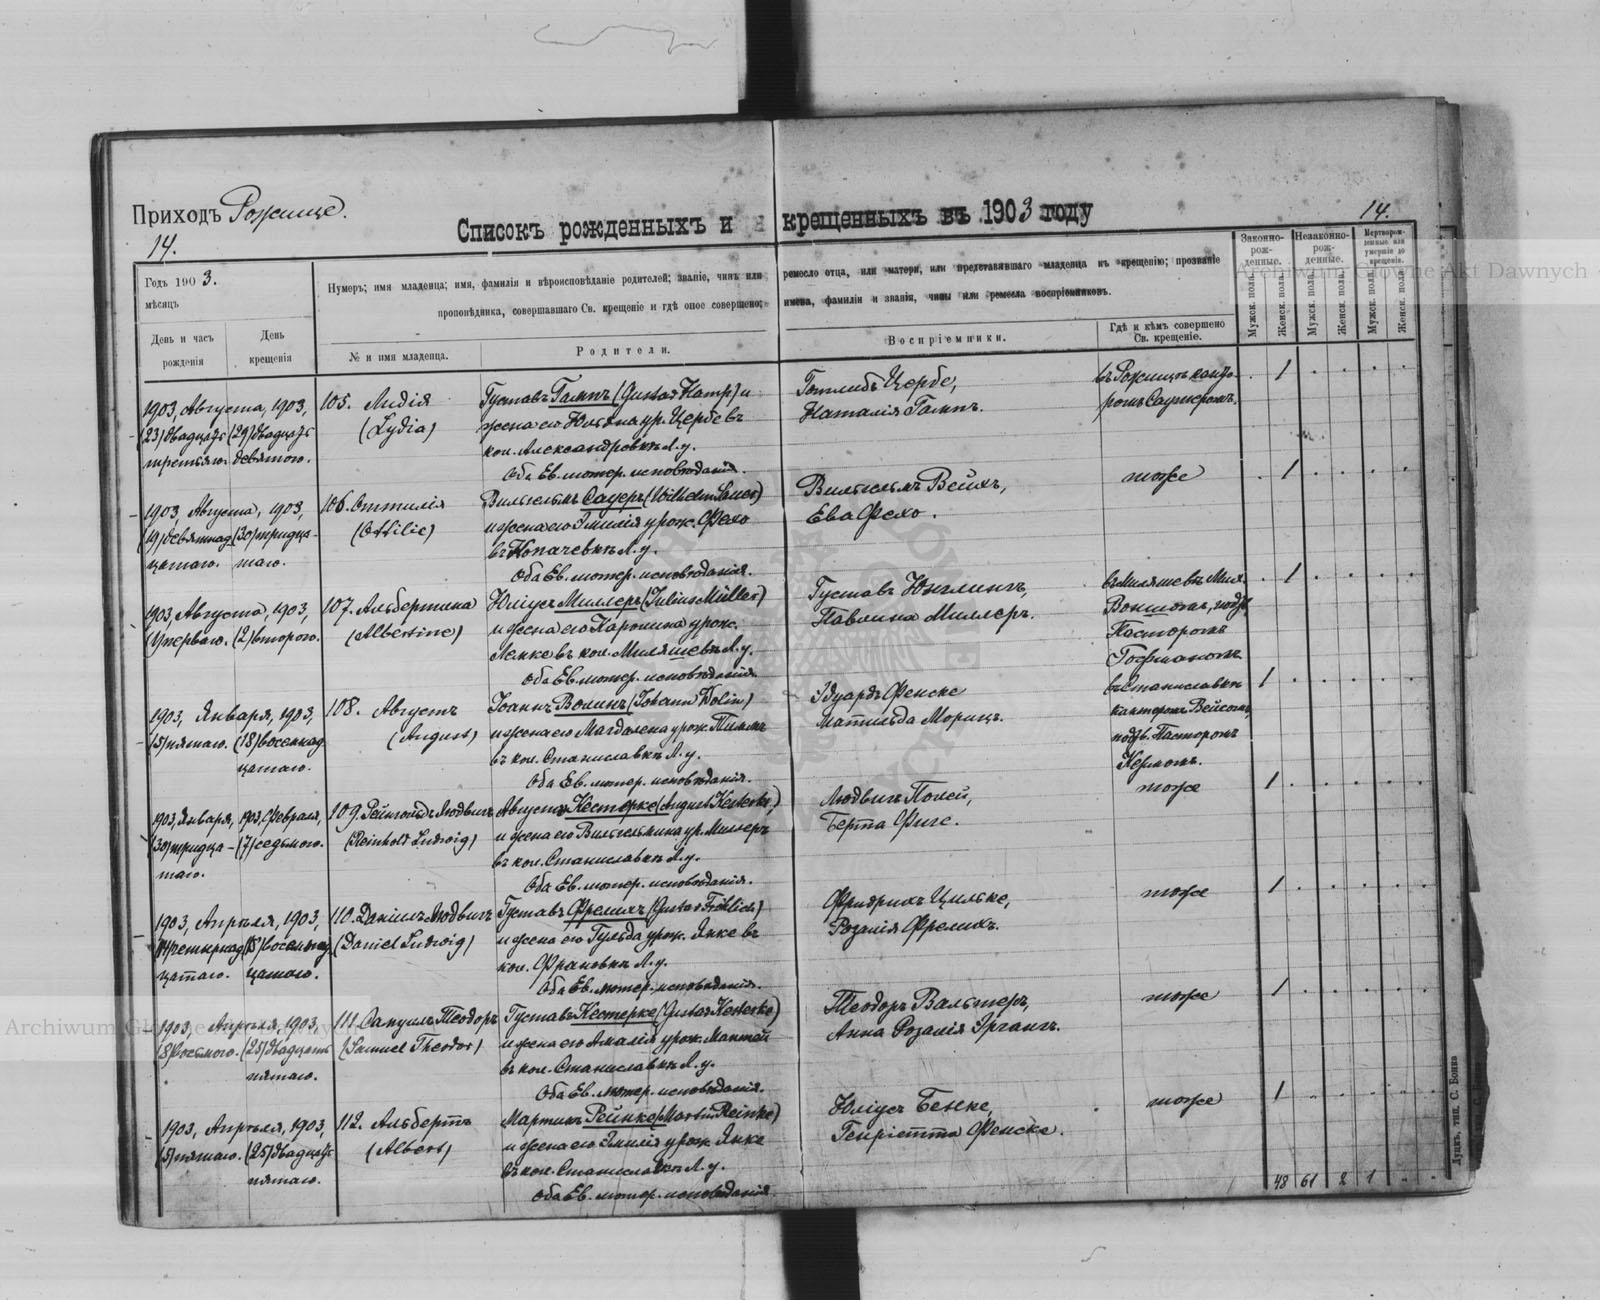 Приходъ Рожище.
14.
14.
Списокъ рожденныхъ и крещенныхъ въ 1903 году
Годъ 1903.
мѣсяцъ
День и часъ рожденія
День крещенія
Нумеръ; имя младенца; имя, фамилія и вѣроисповѣданіе родителей; званіе, чинъ или ремесло отца, или матери, или представявшаго младенца къ крещенію; прозваніе
проповѣдника, совершавшаго Св. крещеніе и гдѣ оное совершено; имена, фамиліи и званія, чины или ремесла воспріемниковъ.
№ и имя младенца.
Родители.
Воспріемники.
Гдѣ и кѣмъ совершено Св. крещеніе.
Законно-рож-денные.
Незаконно-рож-денные.
Мертворож-денные или умершіе до крещенія.
Мужск. пола.
Женск. пола.
Мужск. пола.
Женск. пола.
Мужск. пола.
Женск. пола.
1903, Августа, 1903,
(23) двадцать (29) двадцать
третьяго девятаго.
105. Лидія
(Lydia)
Густавъ Гампъ (Gustav Hamp) и
жена его Юльяна ур. Цербе въ
кол. Александровкѣ Л. у.
Оба Ев. лютер. исповѣданія.
Готлибъ Цербе,
Наталія Гампъ.
въ Рожищѣ канто-
ромъ
1
1903, Августа, 1903,
(19) девятнад (30) тридца-
цатаго. таго.
106. Оттилія
(Ottilie)
Вильгельмъ Сауеръ (Wilhelm Sauer)
и жена его Эмилія урож. Фехо
въ Копачевкѣ Л. у.
Оба Ев. лютер. исповѣданія.
Вильгельмъ Вейхъ,
Ева Фехо.
тоже
1
1903, Августа, 1903,
(1) перваго. (2) второго.
107. Альбертина
(Albertine)
Юліусъ Миллеръ (Julius Müller)
и жена его Каролина урож.
Лемке въ кол. Миляшевъ Л. у.
Оба Ев. лютер. исповѣданія
Густавъ Юнглингъ,
Павлина Миллеръ.
въ Миляшевѣ
Пасторомъ
1
1903, Января, 1903,
(5) пятаго. (18) восемнад
цатаго.
108. Августъ
(August)
Іоаннъ Волинъ (Johann Wolin)
и жена его Магдалена урож. Тиммъ
въ кол. Станиславкѣ Л. у.
Оба Ев. лютер. исповѣданія.
Эдуардъ Фенске
Матильда Морицъ.
въ Станиславкѣ
канторомъ Вейсомъ,
подтв. Пасторомъ
Кермомъ.
1
1903, Января, 1903, Февраля,
(30) тридца- (7) седьмого.
таго.
109. Рейнгольдъ Людвигъ
(Reinhold Ludwig)
Августъ Кестерке (August Kesterke)
и жена его Вильгельмина ур. Миллеръ
въ кол. Станиславкѣ Л. у.
Оба Ев. лютер. исповѣданія.
Людвигъ Полей,
Берта Фиге.
тоже
1
1903, Апрѣля, 1903,
(14) четырнад (18) восемнад
цатаго. цатаго.
110. Даніилъ Людвигъ
(Daniel Ludwig)
Густавъ Фрелихъ (Gustav Fröhlich)
и жена его Гульда урож. Янке въ
кол. Францовкѣ Л. у.
Оба Ев. лютер. исповѣданія.
Фридрихъ Цильке,
Розалія Фрелихъ.
тоже
1
1903, Апрѣля, 1903,
(8) восьмого. (25) двадцать
пятаго.
111. Самуилъ Теодоръ
(Samuel Theodor)
Густавъ Кестерке (Gustav Kesterke)
и жена его Амалія урож. Мантей
въ кол. Станиславкѣ Л. у.
Оба Ев. лютер. исповѣданія.
Теодоръ Вальтеръ,
Анна Розалія Эргангъ.
тоже
1
1903, Апрѣля, 1903,
(5) пятаго. (25) двадцать
пятаго.
112. Альбертъ
(Albert)
Мартинъ Рейнке (Martin Reinke)
и жена его Эмилія урож. Янке
въ кол. Станиславкѣ Л. у.
Оба Ев. лютер. исповѣданія
Юліусъ Бенке,
Генріетта Фенске.
тоже
1
48 61 2 1
Луцкъ, тип. С. Бонка
Archiwum Główne Akt Dawnych
Archiwum Główne Akt Dawnych